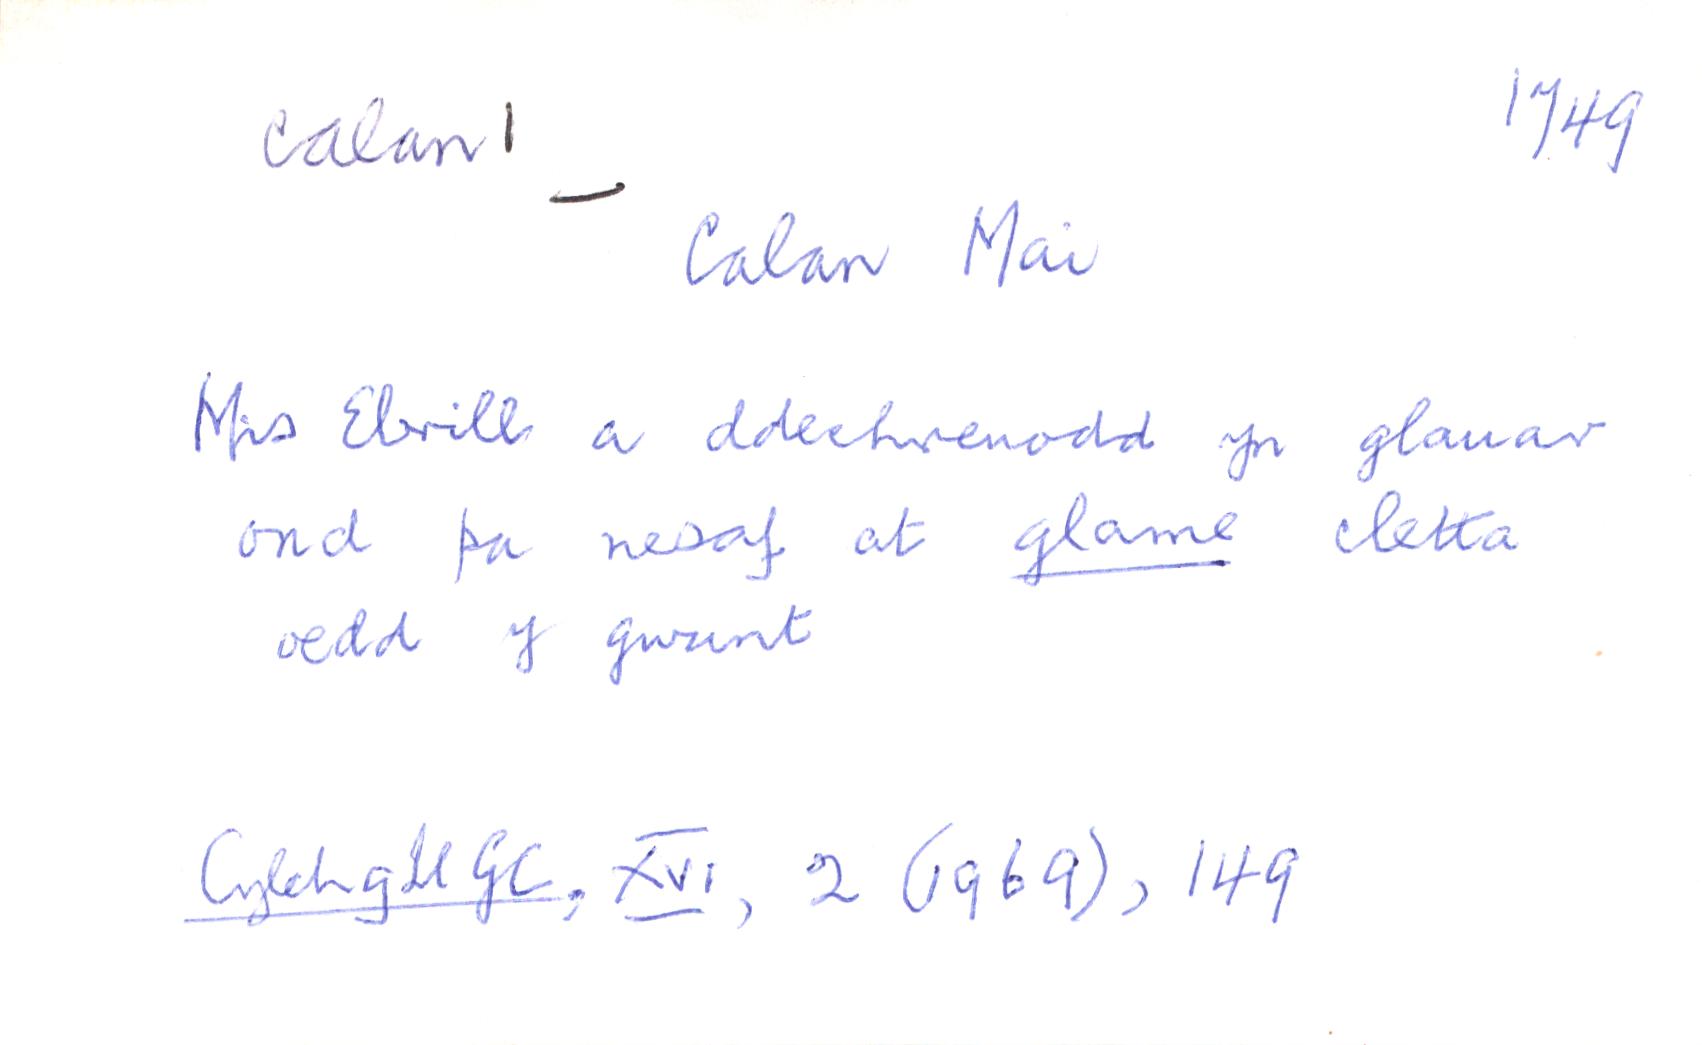 calan1 1749
Calan Mai
Mis Ebrill a ddechrenodd yn glauar
ond pa nesaf at glame cletta
oedd y gwunt
CylchgLlGC, XVI, 2 (1969), 149